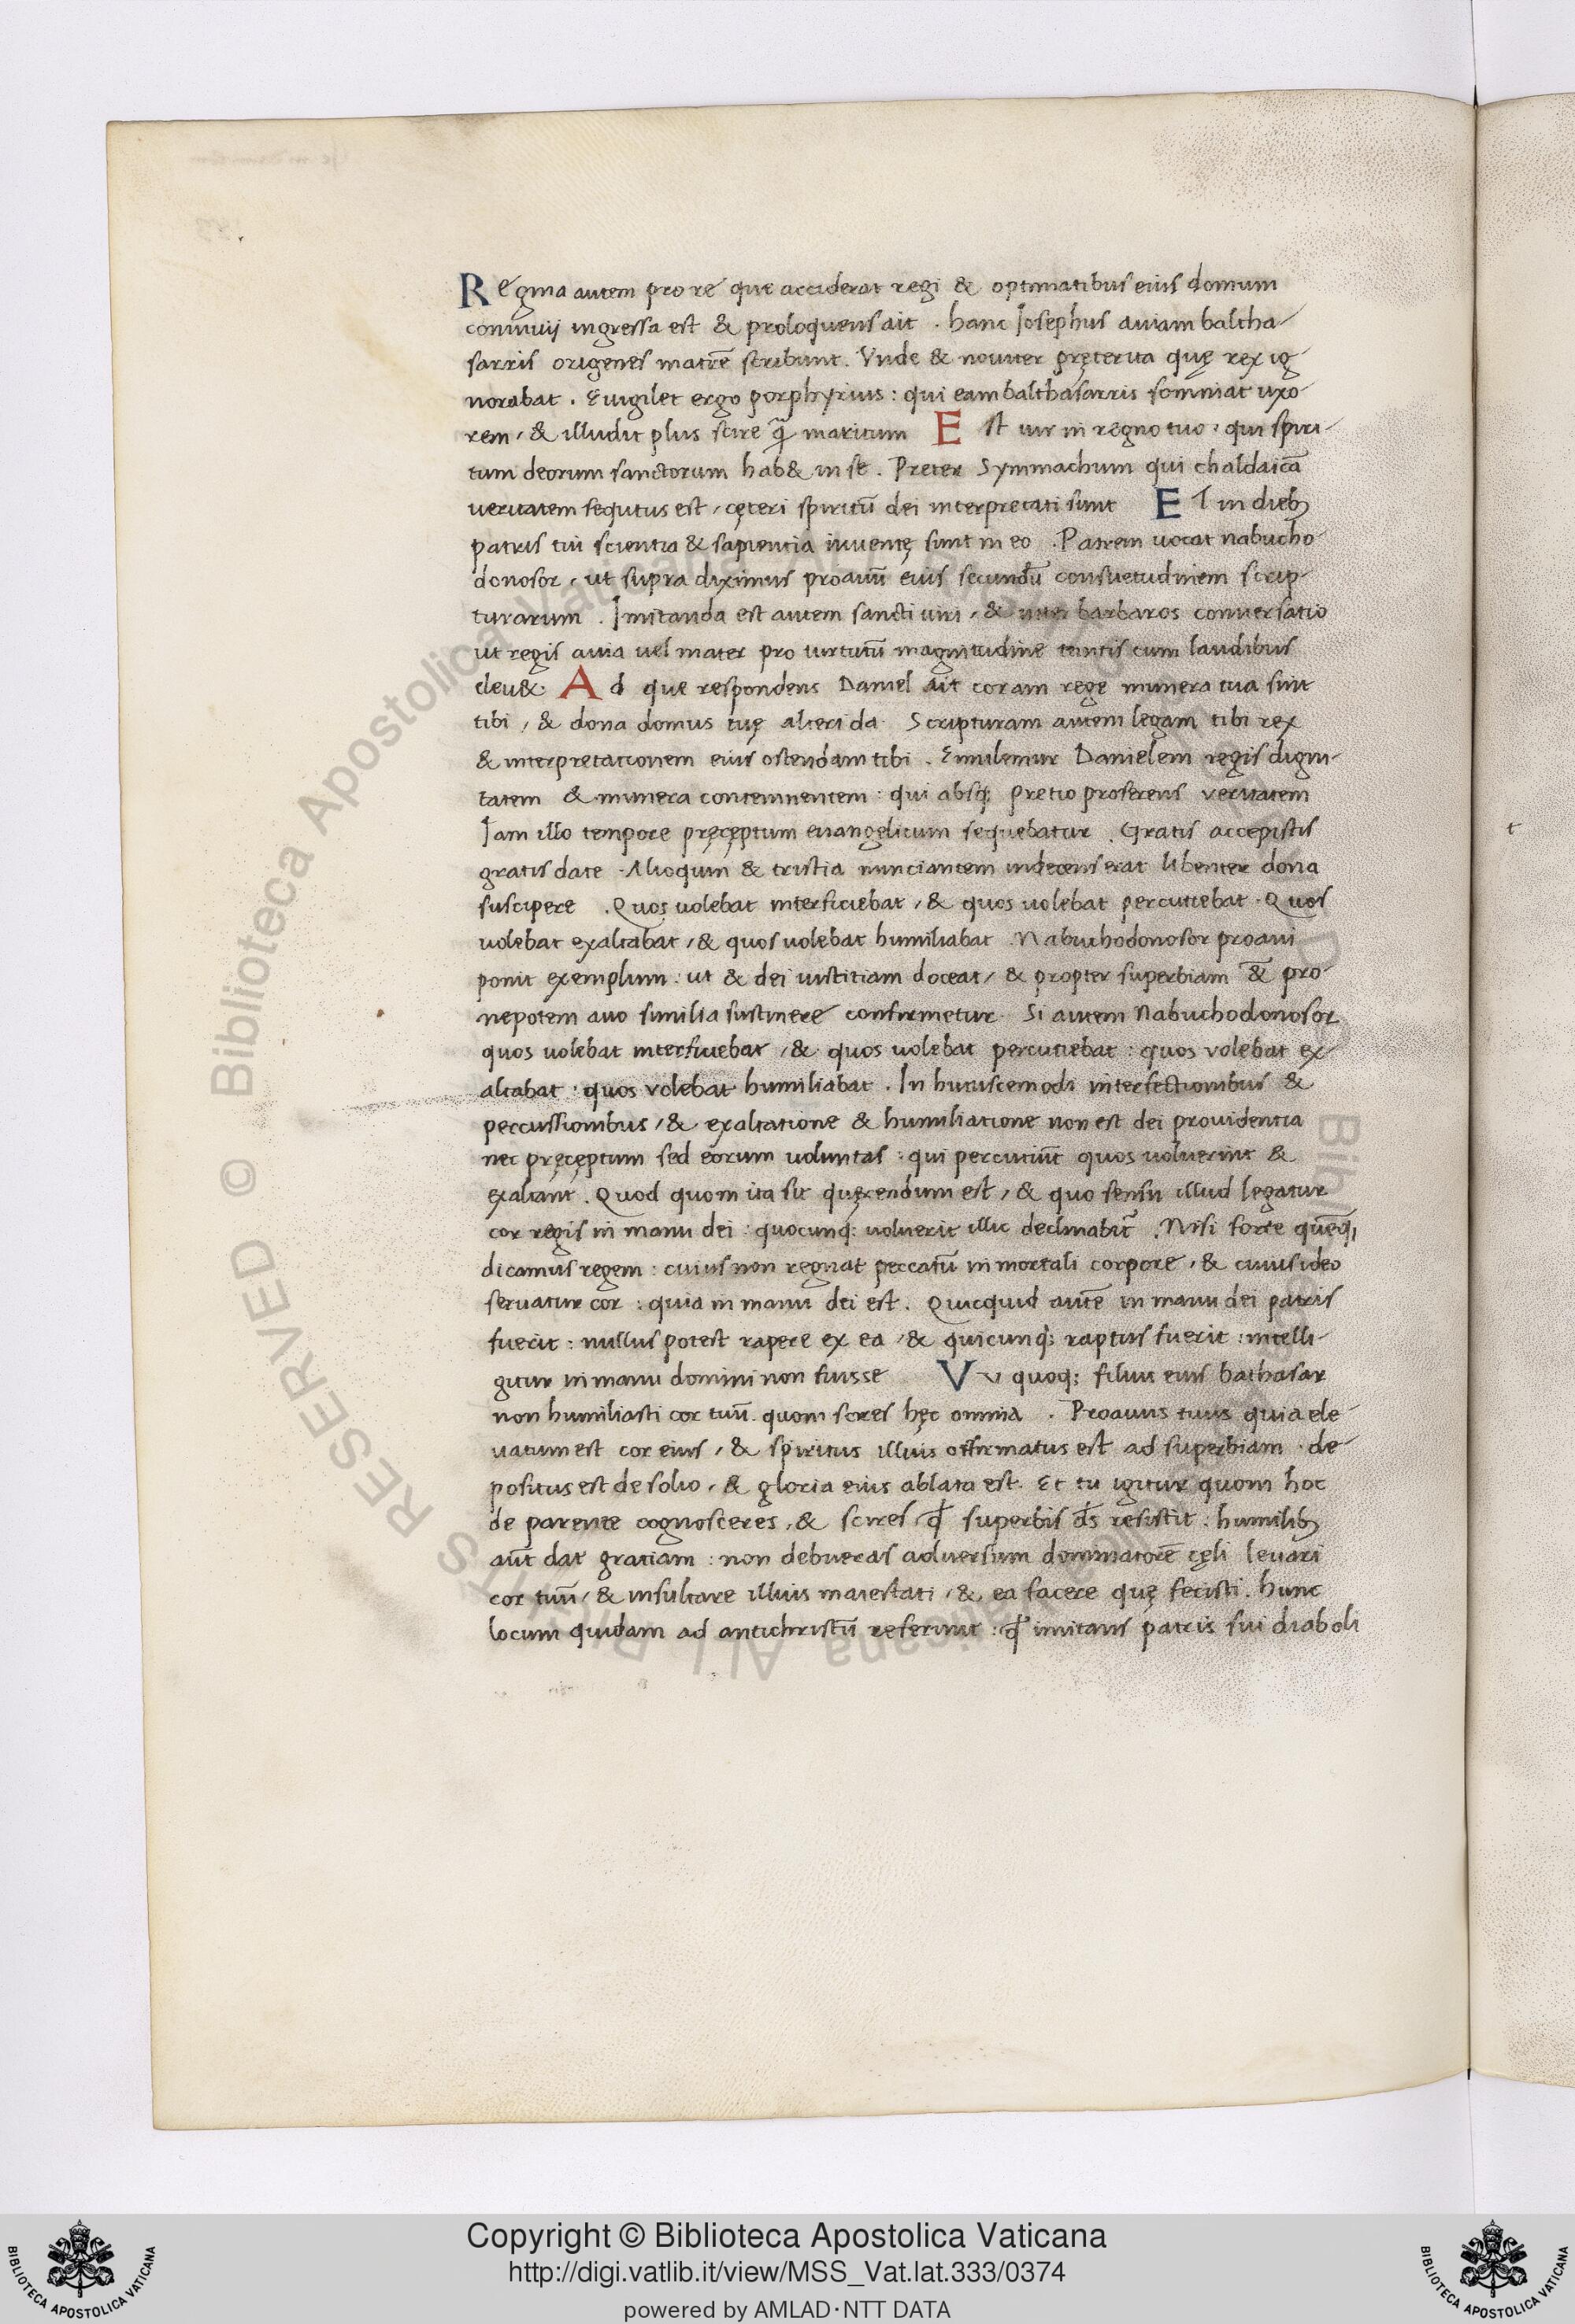 Regina autem pro re que acciderat regi & optimatibus eius domum
conuiuij ingressa est & proloquens ait . hanc Iosephus auiam baltha-
sarris origenes matrē scribunt . Vnde & nouiter pręterita quę rex ig-
norabat . Euigilet ergo porphyrius : qui eam balthasarris somniat uxo-
rem / & illudit plus scire q̄ maritum Est uir in regno tuo / qui spiri-
tum deorum sanctorum hab& in se . Preter Symmachum qui chaldaicā
ueritatem sequtus est / cęteri spiritū dei interpretati sunt ET in dieb;
patris tui scientia & sapientia inuentę sunt in eo . Patrem uocat nabucho-
donosor / ut supra diximus proauū eius secundū consuetudinem scrip-
turarum . Imitanda est autem sancti uiri / & inter barbaros conuersatio
ut regis auia uel mater pro uirtutū magnitudine tantis cum laudibus
eleu& . Ad que respondens Daniel ait coram rege munera tua sint
tibi / & dona domus tuę alteri da . Scripturam autem legam tibi rex
& interpretationem eius ostendam tibi . Emulemur Danielem regis digni-
tatem & munera contemnentem : qui absq; pretio proferens veritatem
Iam illo tempore pręcęptum euangelicum sequebatur . Gratis accepistis
gratis date . Alioquin & tristia nunciantem indecens erat libenter dona
suscipere . Quos uolebat interficiebat / & quos uolebat percutiebat . Quos
uolebat exaltabat / & quos uolebat humiliabat . Nabuchodonosor proaui
ponit exemplum : ut & dei iustitiam doceat / & propter superbiam & pro-
nepotem auo similia sustinere confirmetur . Si autem Nabuchodonosor
quos uolebat interficiebat / & quos uolebat percutiebat : quos volebat ex-
altabat : quos volebat humiliabat . In huiuscemodi interfectionibus &
percussionibus / & exaltatione & humiliatione non est dei prouidentia
nec pręcęptum sed eorum uoluntas : qui percutiūt quos uoluerint &
exaltant . Quod quom ita sit quęrendum est / & quo sensu illud legatur
cor regis in manu dei : quocunq; uoluerit illic declinabit̄ . Nisi forte quēq;
dicamus regem : cuius non regnat peccatū in mortali corpore / & cuius ideo
seruatur cor : quia in manu dei est . Quicquid autē in manu dei patris
fuerit : nullus potest rapere ex ea / & quicunq; raptus fuerit : intelli-
gitur in manu domini non fuisse Vv quoq; filius eius bathasar
non humiliasti cor tuū . quom scires hęc omnia . Proauus tuus quia ele-
uatum est cor eius / & spiritus illius offirmatus est ad superbiam . de-
positus est de solio / & gloria eius ablata est . Et tu igitur quom hoc
de parente cognosceres / & scires / qd̄ superbis d̄s resistit : humilib;
aūt dat gratiam : non debueras aduersum dominatorē cęli leuari
cor tuū / & insultare illius maiestati / & ea facere quę fecisti . hunc
locum quidam ad antichristū referunt : qd̄ imitans patris sui diaboli
t
Copyright © Biblioteca Apostolica Vaticana
http://digi.vatlib.it/view/MSS_Vat.lat.333/0374
powered by AMLAD·NTT DATA